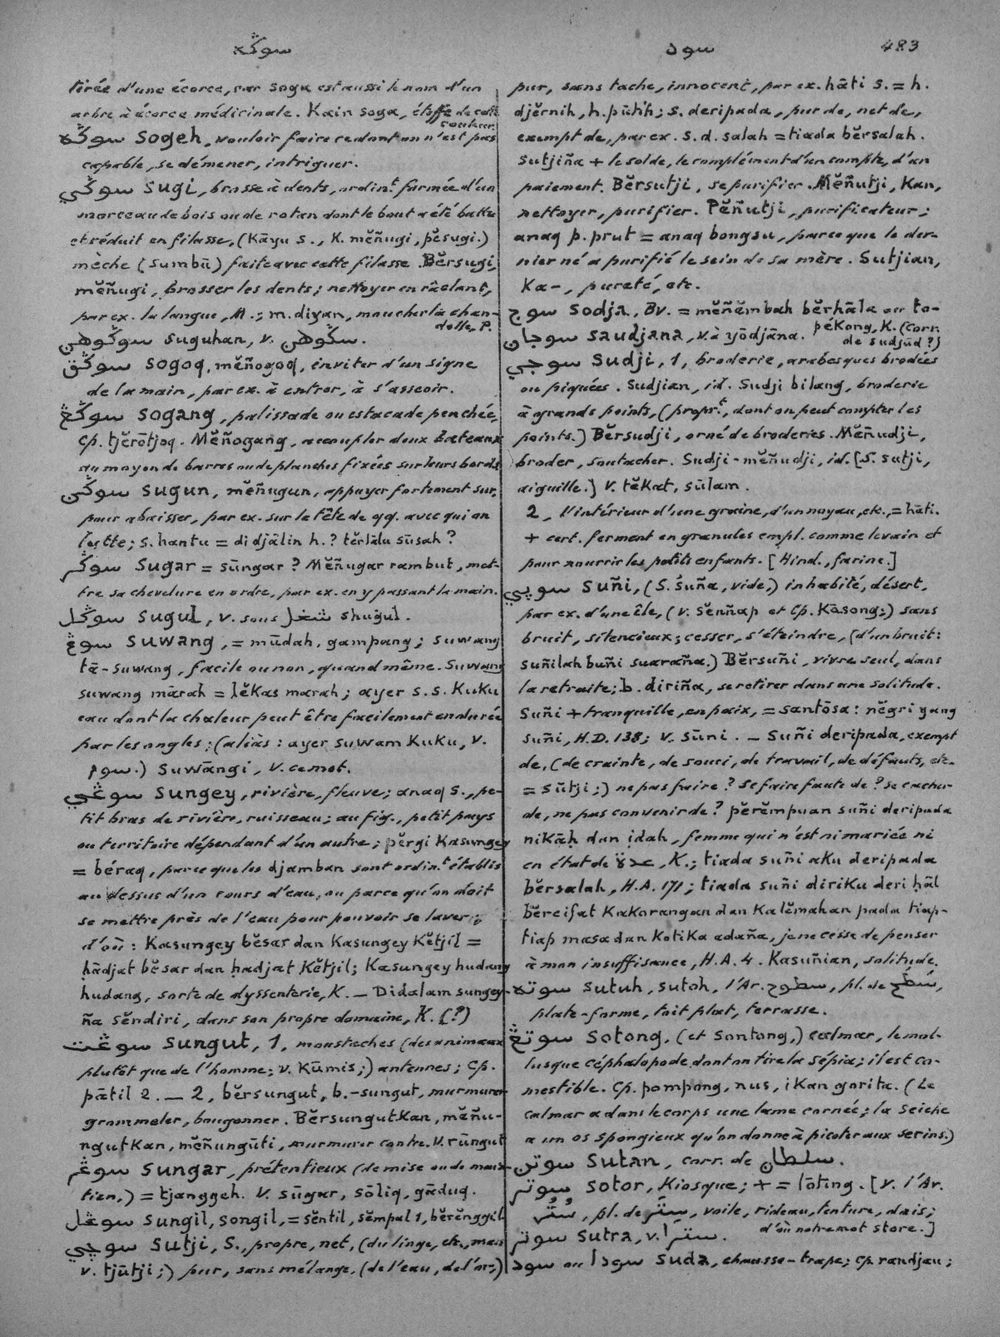 سوڬه
سود
483
tirée d'une écorce, car soga est aussi le nom d'un
arbre à écorce médicinale. Kain soga, étoffe de cette
couleur.
سوڬه sogeh, vouloir faire ce dont on n'est pas
capable, se démener, intriguer.
سوڬي sugi, brosse à dents, ordin.t formée d'un
morceau de bois ou de rotan dont le bout a été battu
et réduit en filasse, (Kāyu s., K. mĕñugi, pĕsugi.)
mèche (sumbū) faite avec cette filasse. Bĕrsugi,
mĕñugi, brosser les dents; nettoyer en râclant,
par ex. la langue, M.; m. diyan, moucher la chan-
delle, P.
سوڬوهن suguhan, v. سڬوهن.
سوڬق sogoq, mĕñogoq, inviter d'un signe
de la main, par ex. à entrer, à s'asseoir.
سوڬڠ sogang, palissade ou estacade penchée,
cp. tjĕrōtjoq. Mĕñogang, accoupler deux bateaux
au moyen de barres ou de planches fixées sur leurs bords.
سوڬن sugun, mĕñugun, appuyer fortement sur,
pour abaisser, par ex. sur la tête de qq. avec qui on
lutte; s. hantu = di djālin h.? tĕrlālu sūsah?
سوڬر sugar = sūngar? Mĕñugar rambut, met-
tre sa chevelure en ordre, par ex. en y passant la main.
سوڬل sugul, v. sous شغل shugul.
سوڠ suwang, = mūdah, gampang; suwang
tā-suwang, facile ou non, quand même. Suwang
suwang mārah = lĕkas marah; ayer s.s. Kuku
eau dont la chaleur peut être facilement endurée
par les ongles; (aliàs: ayer suwam Kuku, v.
سوم.) Suwāngi, v. ce mot.
سوڠي sungey, rivière, fleuve; anaq s., pe-
tit bras de rivière, ruisseau; au fig., petit pays
ou territoire dépendant d'un autre; pĕrgi Kasungey
= béraq, parce que les djamban sont ordin.t établis
au dessus d'un cours d'eau, ou parce qu'on doit
se mettre près de l'eau pour pouvoir se laver;
d'où: Kasungey bĕsar dan Kasungey Kĕtjil =
ḥādjat bĕsar dan ḥadjat Kĕtjil; Kasungey hudang
hudang, sorte de dyssenterie, K. — Didalam sungey-
ña sĕndiri, dans son propre domaine, K. (?)
سوڠت sungut, 1, moustaches (des animaux
plutôt que de l'homme; v. Kūmis;) antennes; cp.
pātil 2. — 2, bĕrsungut, b.-sungut, murmurer
grommeler, bougonner. Bĕrsungutkan, mĕñu-
ngutkan, mĕñungūti, murmurer contre. V. rūngut
سوڠر sungar, prétentieux (de mise ou de main-
tien,) = tjanggeh. V. sūgar, sōliq, gādug.
سوڠل sungil, songil, = sĕntil, sĕmpal 1, bĕrĕnggil
سوچي sutji, S., propre, net, (du linge, etc., mais
v. tjūtji;) pur, sans mélange, (de l'eau, de l'or;)
pur, sans tache, innocent, par ex. hāti s. = h.
djĕrnih, h. pūtih; s. deripada, pur de, net de,
exempt de, par ex. s. d. salah = tiada bĕrsalah.
Sutjiña + le solde, le complément d'un compte, d'un
paiement. Bĕrsutji, se purifier. Mĕñutji, Kan,
nettoyer, purifier. Pĕñutji, purificateur;
anaq p. prut = anaq bongsu, parce que le der-
nier né a purifié le sein de sa mère. Sutjian,
Ka-, pureté, etc.
سوج sodja, Bv. = mĕñĕmbah bĕrhāla ou to-
pekong, K. (corr.
de sudjūd?)
سوجان saudjana, v. à yōdjāna.
سوجي sudji, 1, broderie, arabesques brodées
ou piquées. Sudjian, id. Sudji bilang, broderie
à grands points, (propr.t, dont on peut compter les
points.) Bĕrsudji, orné de broderies. Mĕñudji,
broder, soutacher. Sudji-mĕñudji, id. [S. sutji,
aiguille.] V. tĕkat, sūlam.
2, l'intérieur d'une graine, d'un noyau, etc., = hāti.
+ cert. ferment en granules empl. comme levain et
pour nourrir les petits enfants. [Hind., farine.]
سوڽي suñi, (S. śuña, vide,) inhabité, désert,
par ex. d'une île, (v. sĕnñap et cp. Kāsong;) sans
bruit, silencieux; cesser, s'éteindre, (d'un bruit:
suñilah buñi suaraña.) Bĕrsuñi, vivre seul, dans
la retraite; b. diriña, se retirer dans une solitude.
Suñi + tranquille, en paix, = santōsa: nĕgri yang
suñi, H.D. 138; v. sūni. — Suñi deripada, exempt
de, (de crainte, de souci, de travail, de défauts, etc.
= sūtji;) ne pas faire? Se faire faute de? Se cacher
de, ne pas convenir de? pĕrĕmpuan suñi deripada
nikāḥ dan ịdah, femme qui n'est ni mariée ni
en état de عدة, K.; tiada suñi aku deripada
bĕrsalah, H.A. 171; tiada suñi diriku deri ḥāl
bĕrcifat Kakorangan dan Kalĕmahan pada tiap-
tiap masa dan Kotika adaña, je ne cesse de penser
à mon insuffisance, H.A. 4. Kasuñian, solitude.
سوته sutuh, sutoh, l'Ar. سطوح, pl. de سَطْح,
plate-forme, toit plat, terrasse.
سوتڠ sotong, (et sontong,) calmar, le mol-
lusque céphalopode dont on tire la sépia; il est co-
mestible. Cp. pompong, nus, ikan gorita. (Le
calmar a dans le corps une lame cornée; la seiche
a un os spongieux qu'on donne à picoter aux serins.)
سوتن sutan, corr. de سلطان.
سوتر sotor, Kiosque; + = lōting. [V. l'Ar.
سُتُر, pl. de سِتْر, voile, rideau, tenture, dais;
d'où notre mot store.]
سوتر sutra, v. سترا.
سود ou سودا suda, chausse-trape; cp. randjau;